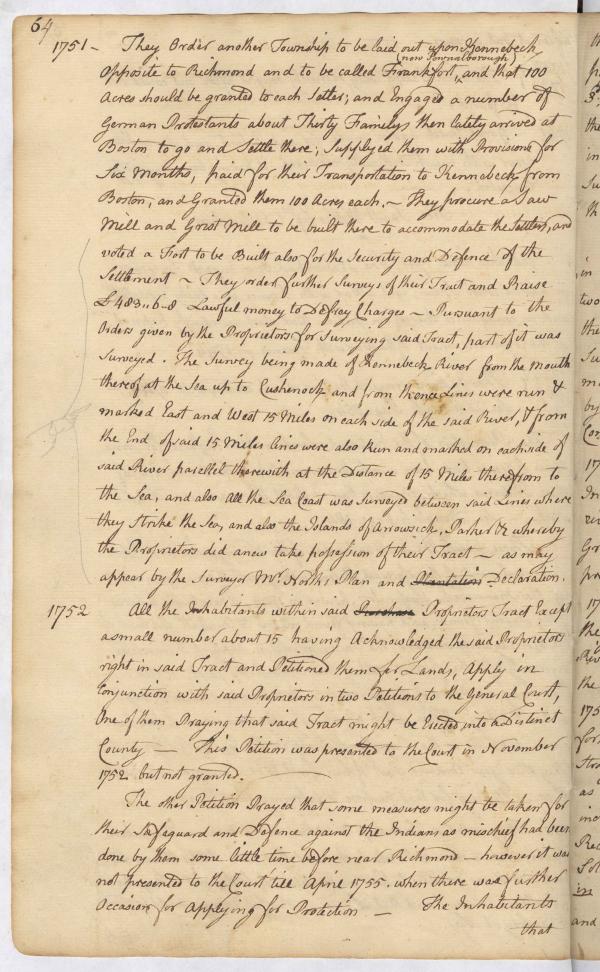 64
1751 - They Order another Township to be laid out upon Kennebeck
(now Pownalborough)
Opposite to Richmond and to be called Frankfort, and that 100
Acres should be granted to each Settler; and Engaged a number of
German Protestants about Thirty Familys then lately arrived at
Boston to go and Settle there; Supplyed them with Provisions for
Six Months, paid for their Transportation to Kennebeck from
Boston, and Granted them 100 Acres each. ~ They procure a Saw
Mill and Grist Mill to be built there to accommodate the Settlers, and
voted a Fort to be Built also for the Security and Defence of the
Settlement ~ They order further Surveys of their Tract and Raise
£483..6..8 Lawful money to Defray Charges ~ Pursuant to the
Orders given by the Proprietors for Surveying said Tract, part of it was
Surveyed. The Survey being made of Kennebeck River from the mouth
thereof at the Sea up to Cushenock and from thence Lines were run &
marked East and West 15 Miles on each side of the said River, & from
the End of said 15 Miles lines were also Run and marked on each side of
said River parellel therewith at the Distance of 15 Miles therefrom to
the Sea, and also all the Sea Coast was Surveyed between said Lines where
they strike the Sea, and also the Islands of Arrowsick, Parker &c whereby
the Proprietors did anew take possession of their Tract ~ as may
appear by the Surveyor Mr. Norths Plan and Plantation Declaration.
1752 All the Inhabitants within said Purchase Proprietors Tract Except
a small number about 15 having Acknowledged the said Proprietors
right in said Tract and Petitioned them for Lands, Apply in
Conjunction with said Proprietors in two Petitions to the General Court,
One of them Praying that said Tract might be Erected into a Distinct
County — This Petition was presented to the Court in November
1752 but not granted.
The other Petition Prayed that some measures might be taken for
their Safeguard and Defence against the Indians as mischief had been
done by them some little time before near Richmond - however it was
not presented to the Court till April 1755. when there was further
Occasion for Applying for Protection — The Inhabitants
that